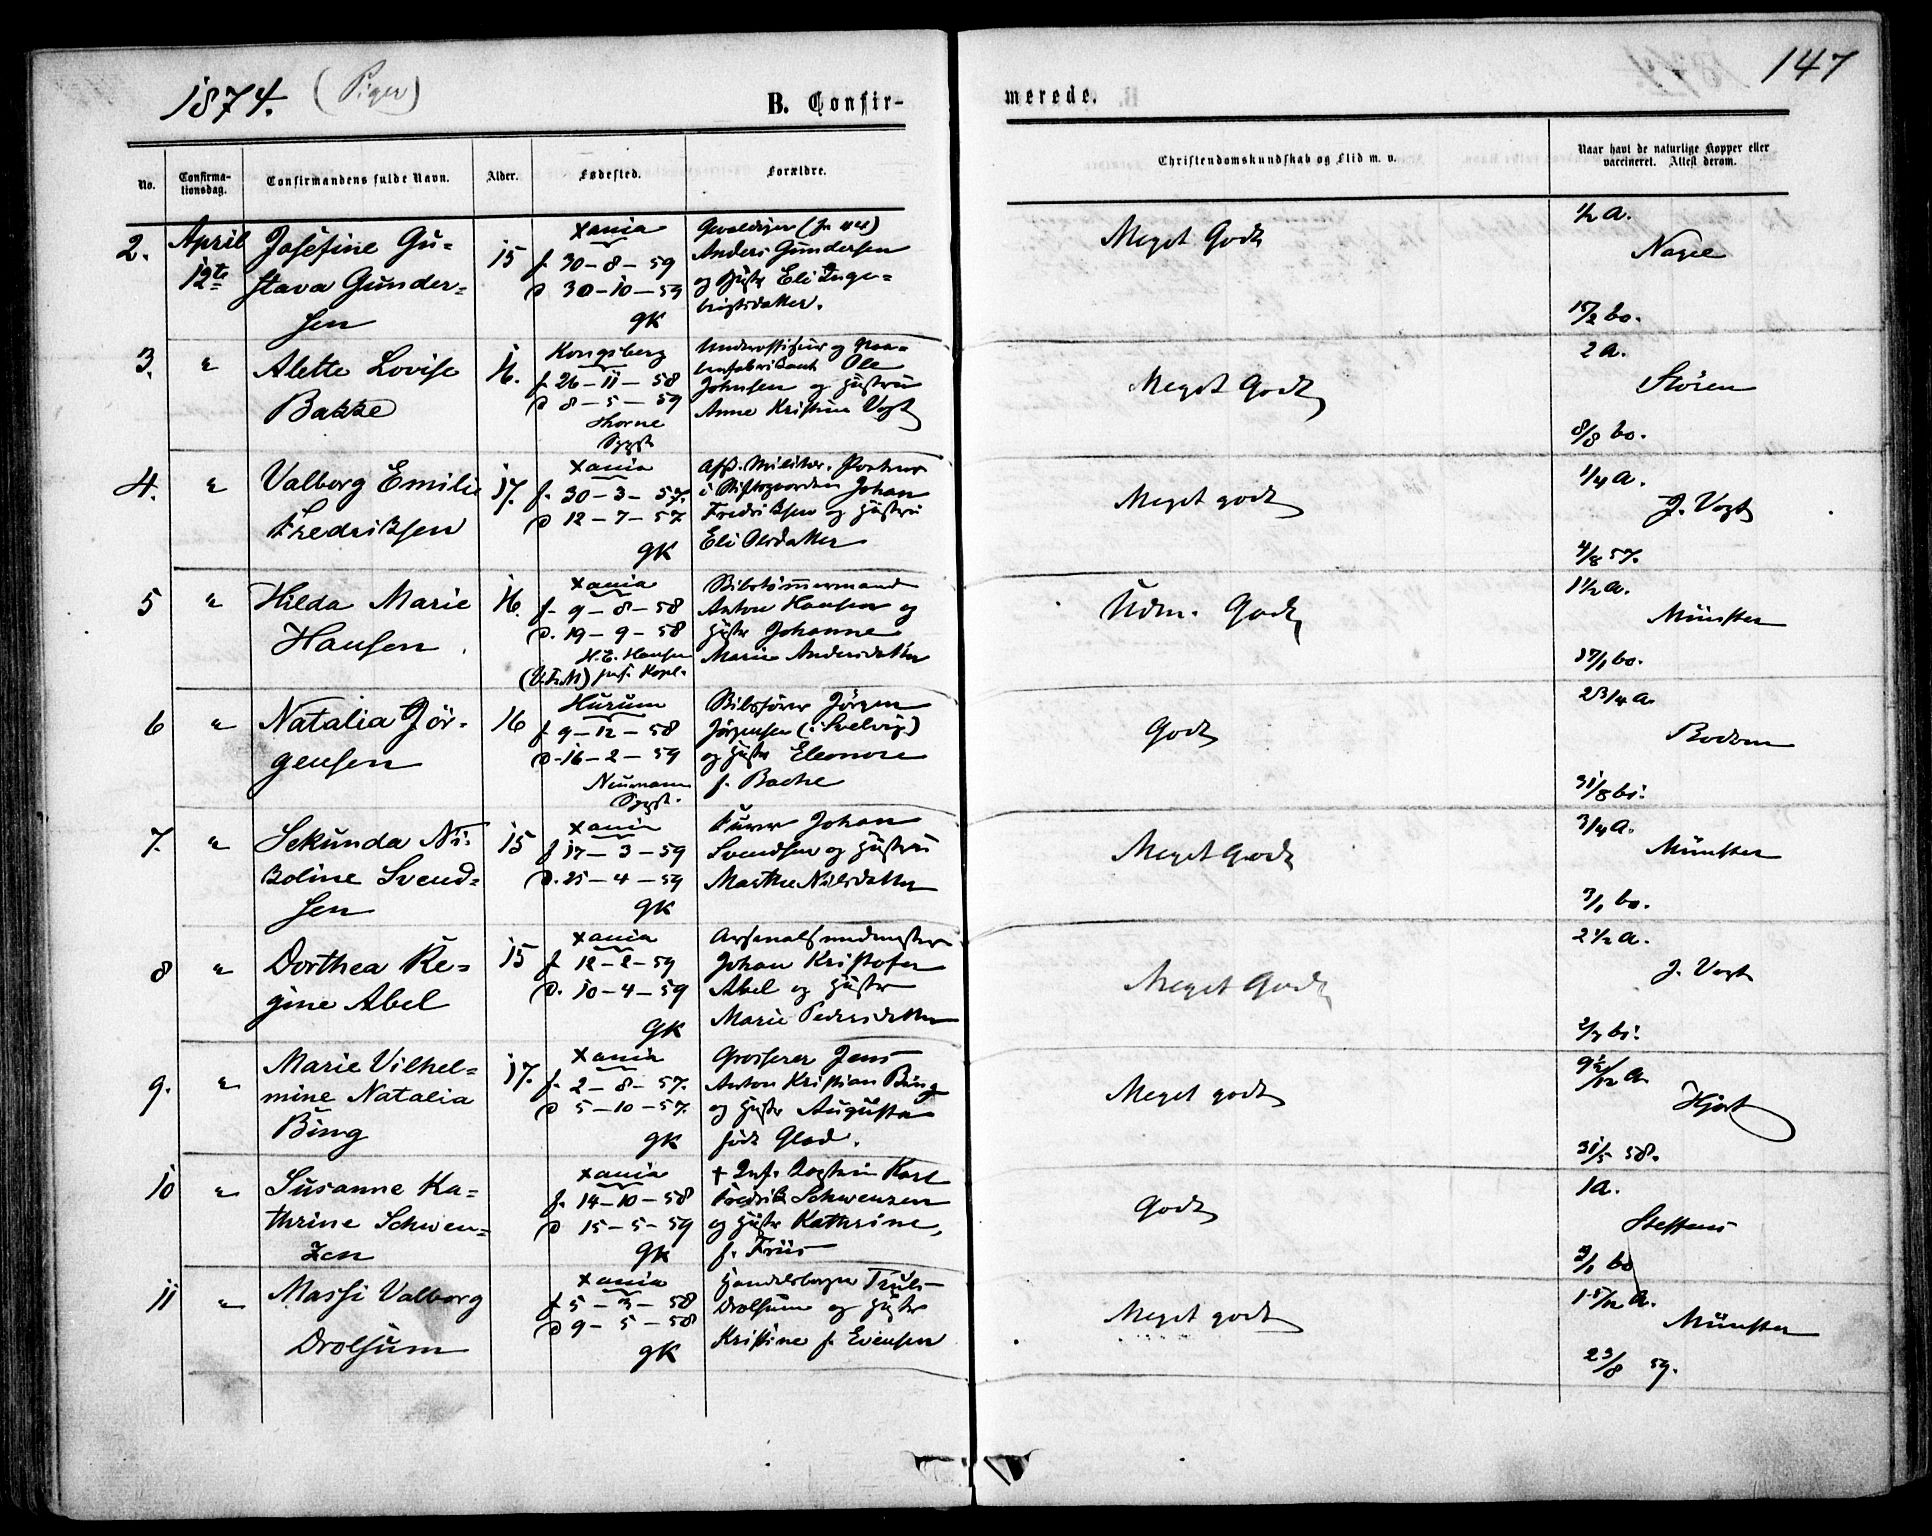 1874. (Piger)
B. Confir-
merede.
147
No.
Confirma-
tionsdag.
Confirmandens fulde Navn.
Alder.
Fødested.
Forældre.
Christendomskundskab og Flid m. v.
Naar havt de naturlige Kopper eller
vaccineret. Attest derom.
2.
April
12te
Josefine Gu-
stava Gunder-
sen
15
Xania
f. 30-8-59
D 30-10-59
GK
Anders Gundersen
og Hustr Eli Inge-
brigtsdatter.
Meget Godt
1/2 A.
3.
"
Alette Lovise
Bakke
16.
Kongsberg
f. 26-11-58
D 8-5-59
Underofficier og
Ole
Johnsen og Hustru
Anne Kristine Vogt
Meget Godt
2 A.
Støren
8/8 60.
4.
"
Valborg Emilie
Fredriksen
17.
Xania
f. 30-3-57.
D 12-7-57
GK
i Stiftsgaarden Johan
Fredriksen og Hustru
Eli Olsdatter
Meget godt
1/4 A.
J. Vogt
4/8 57.
5
"
Hilda Marie
Hansen
16.
Xania
f. 9-8-58
D. 19-9-58
H. E. Hansen
Anton Hansen og
Hustr Johanne
Marie Andersdatter
Udm. Godt
1 1/2 A.
Münster
6
"
Natalia Jør-
gensen
16
Hurum
f 9-12-58
D. 16-2-59
Neumann
Sgpr.
Jørgen
Jørgensen (i Svelvig)
og Hustr Eleonore
f. Bache
Godt
2 3/4 A.
31/8 61.
7.
"
Sekunda Ni-
koline Svend-
sen
15
Xania
f 17-3-59
D. 25-4-59
GK
Furer Johan
Svendsen og Hustru
Marthe Nilsdatter
Meget Godt
3/4 A.
Münster
60.
8
"
Dorthea Re-
gine Abel
15
Xania
f 12-2-59
D. 10-4-59
GK
Johan Kristofer
Abel og Hustr
Marie Pedersdatter
Meget Godt
2 1/2 A.
J. Vogt
61.
9.
"
Marie Vilhel-
mine Natalia
Bing
17.
Xania
f. 2-8-57.
D 5-10-57.
GK
Grosserer Jens
Anton Kristian Bing
og Hustr Augusta
født Glad.
Meget godt
Hjort
31/5 58.
10
"
Susanne Ka-
thrine Schwen-
zen
Xania
f. 14-10-58
D 15-5-59
GK
Fredrik Schwenzen
og Hustr Kathrine,
f. Friis
Godt
1 A.
Steffens
60
11
"
Massi Valborg
Drolsum
Xania
f 5-3-58
D 9-5-58
GK
Handelsborger Truls
Drolsum og Hustr
Kristine f. Evensen
Meget godt
1 5/12 A.
Münster
23/8 59.